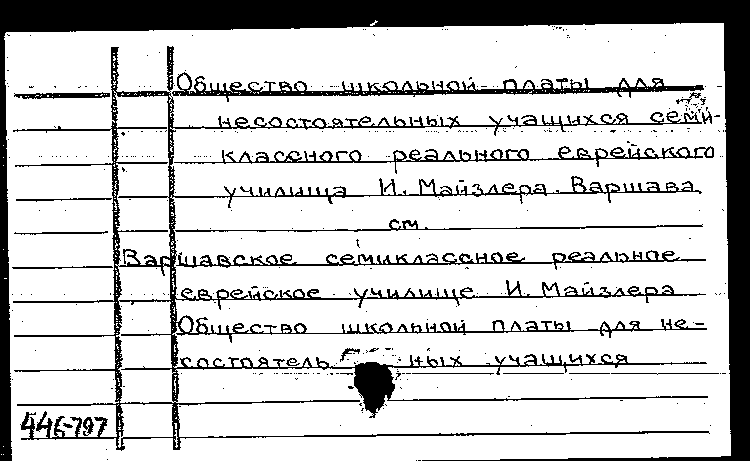 Общество школьной платы для
несостоятельных учащихся семи-
классного реального еврейского
училища И. Майзлера. Варшава
см.
Варшавское семиклассное реальное
еврейское училище И. Майзлера
Общество школьной платы для не-
состоятель ных учащихся
446-797